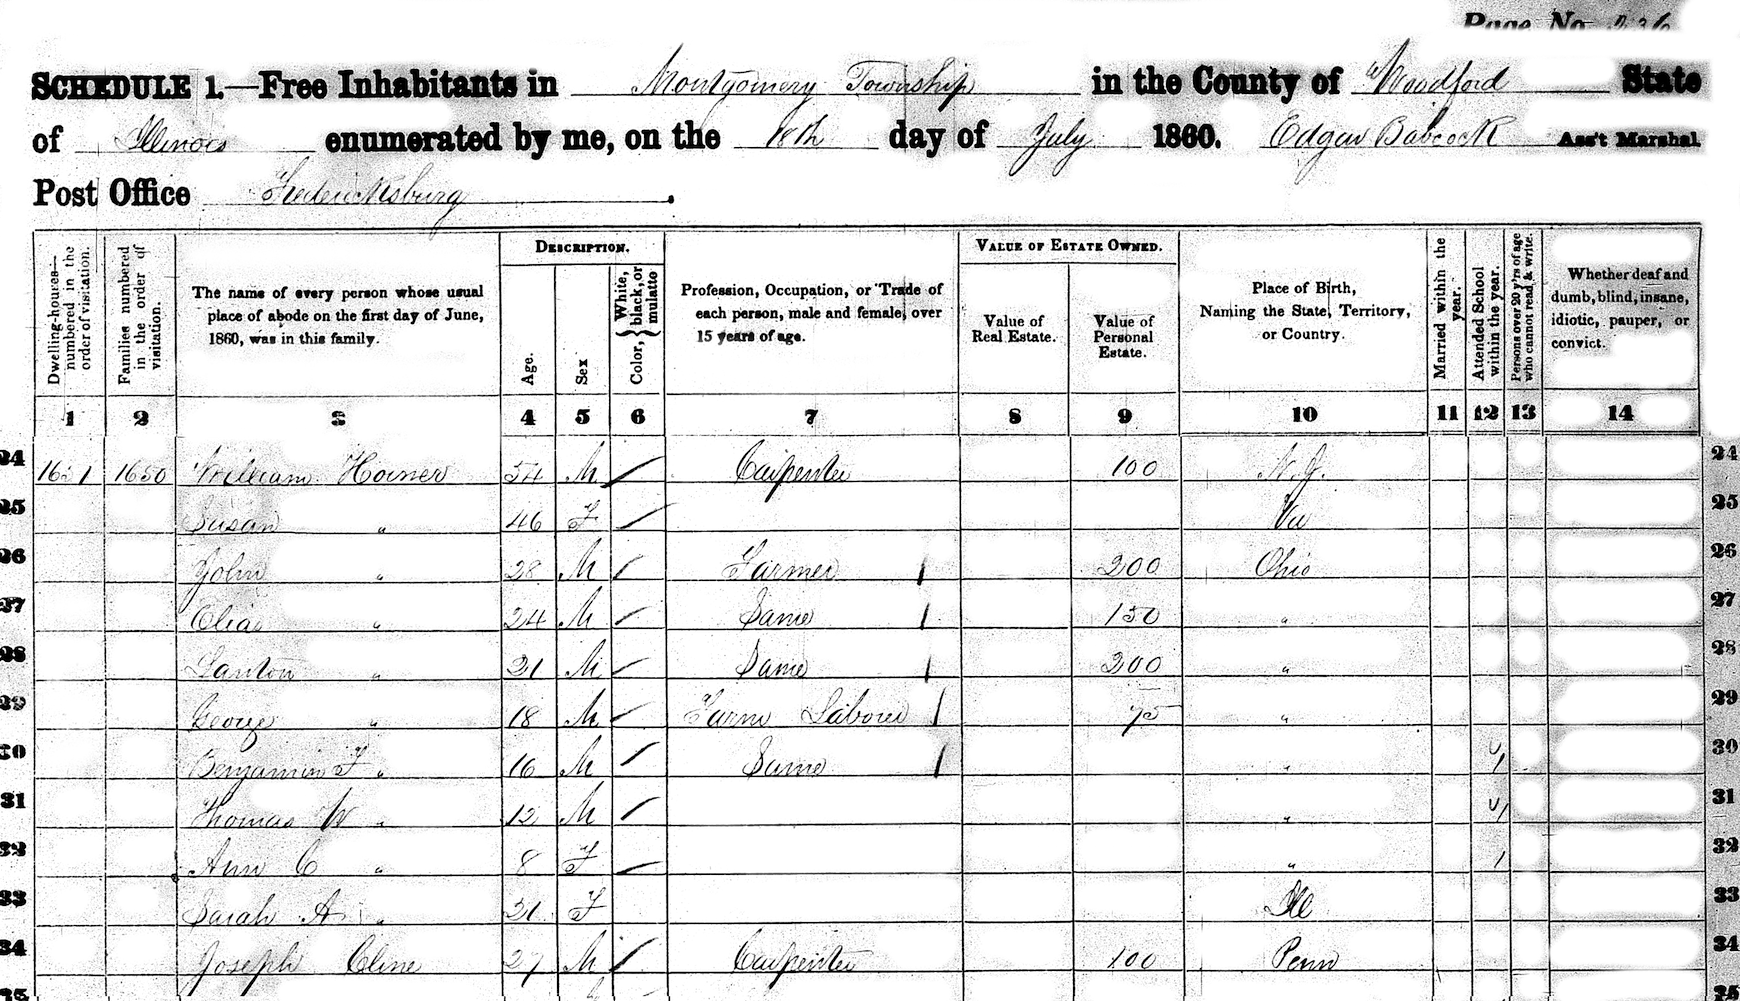 Page No. 236
SCHEDULE 1.—Free Inhabitants in Montgomery Township in the County of Woodford State
of Illinois enumerated by me, on the 18th day of July 1860. Edgar Babcock Ass't Marshal.
Post Office Fredericksburg.
Dwelling-houses—numbered in the order of visitation.
Families numbered in the order of visitation.
The name of every person whose usual place of abode on the first day of June, 1860, was in this family.
DESCRIPTION.
Age.
Sex
Color, { White, black, or mulatto
Profession, Occupation, or Trade of each person, male and female, over 15 years of age.
VALUE OF ESTATE OWNED.
Value of Real Estate.
Value of Personal Estate.
Place of Birth, Naming the State, Territory, or Country.
Married within the year.
Attended School within the year.
Persons over 20 y'rs of age who cannot read & write.
Whether deaf and dumb, blind, insane, idiotic, pauper, or convict.
1 2 3 4 5 6 7 8 9 10 11 12 13 14
24 1651 1650 William Horner 54 M / Carpenter 100 N.J. 24
25 Susan " 46 F / Va 25
26 John " 28 M / Farmer / 200 Ohio 26
27 Elias " 24 M / Same / 150 " 27
28 " 21 M / Same / 200 " 28
29 George " 18 M / Farm Laborer / 75 " 29
30 Benjamin F " 16 M / Same / " / 30
31 Thomas W " 12 M / " / 31
32 Ann C " 8 F / " / 32
33 Sarah A. " 21 F Ill 33
34 Joseph Cline 27 M / Carpenter 100 Penn 34
35 35